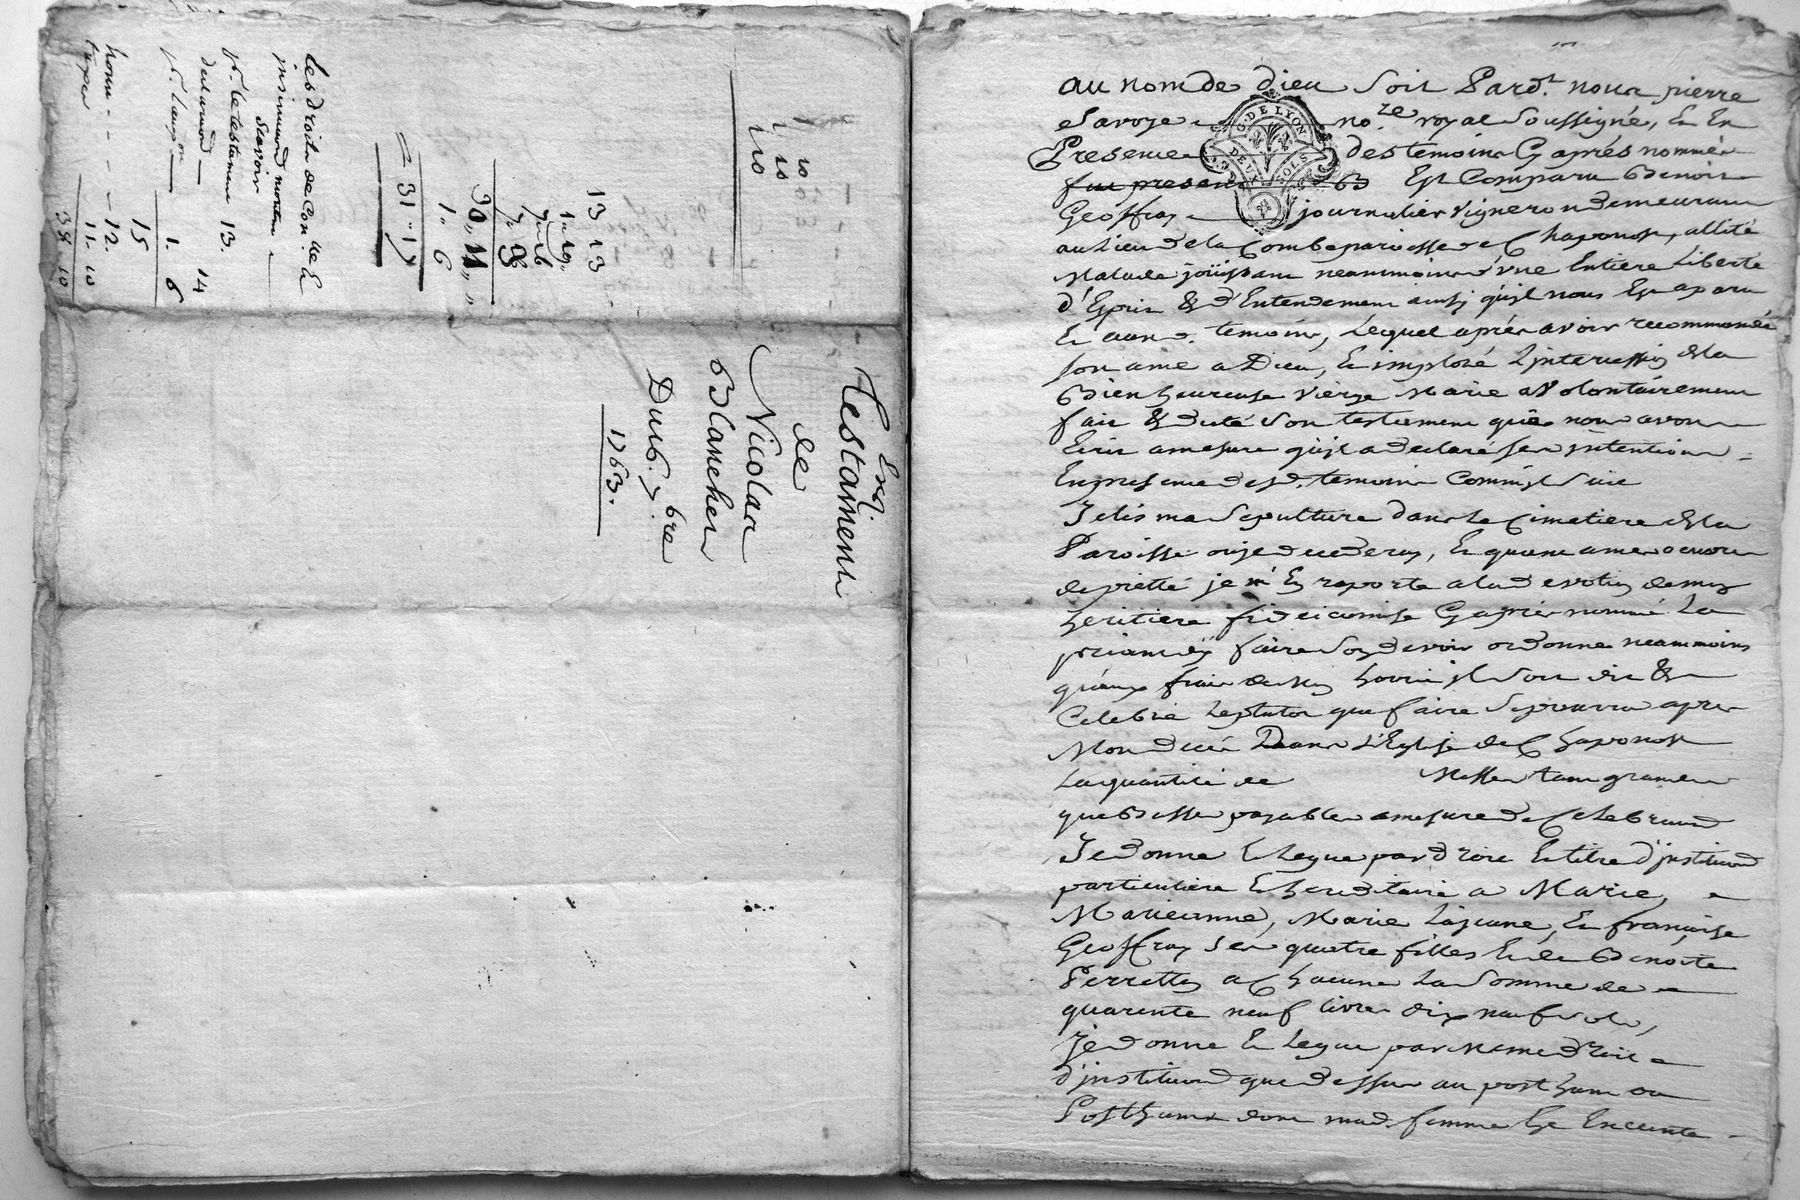 Les droits de Con.lle &
insinuaon montent
Scavoir
p.r le testament 13.
14
1. 6
15
12.
11. 10
38. 10
10
1 10
1 10
13 13
30 11
1. 6
= 31 " 17
Exq.
Testament
de
Nicolas
Blancher
Du 16. 7bre
1763.
au nom de dieu Soit Pard.t nous pierre
esavoye no.re royal Soussigné, & En
G. DE LYON
DEUX SOLS
Presence des temoins Cy aprés nommés
fut present Est Comparu Benoit
Geoffray journalier Vigneron demeurant
au Lieu de la Combe paroisse de Chaponost, allité
Malade joüissant neantmoins d'une Entiere Liberté
d'Esprit & d'Entendement ainsy qu'il nous Est aparu
Et aux d. temoins, Lequel aprés avoir recommandé
son ame a Dieu, & imploré L'intercession de la
Bienheureuse Vierge Marie a Volontairement
fait & dicté Son testament que nous avons
Ecrit a mesure qu'il a declaré ses intentions
En presence desd. temoins Comm'il Suit
Jelis ma Sepulture dans Le Cimetiere de la
Paroisse ou je decederay, & quant a mes oeuvres
de pietté je m'En raporte a la devotion de mon
heritiere fideicomise Cy aprés nommé La
priant d'y faire Son devoir ordonne neammoins
qu'aux frais de mon hoirie il Soit dit &
Celebré Leplutot que faire Se pourra apres
Mon decés Dans L'Eglise de Chaponost
La quantité de Messes tant grandes
que Basses payables a mesure de Celebraon
Je donne & Legue par droit & titre d'institution
particuliere & hereditaire a Marie,
Marieanne, Marie La jeune, & françoise
Geoffray Ses quatre filles & de Benoite
Perrette a Chacune La Somme de
quarente neuf livres dix neuf Sols,
Je donne & Legue par meme droit
d'institution que dessus au posthume ou
Posthumes dont mad. femme Est Enceinte